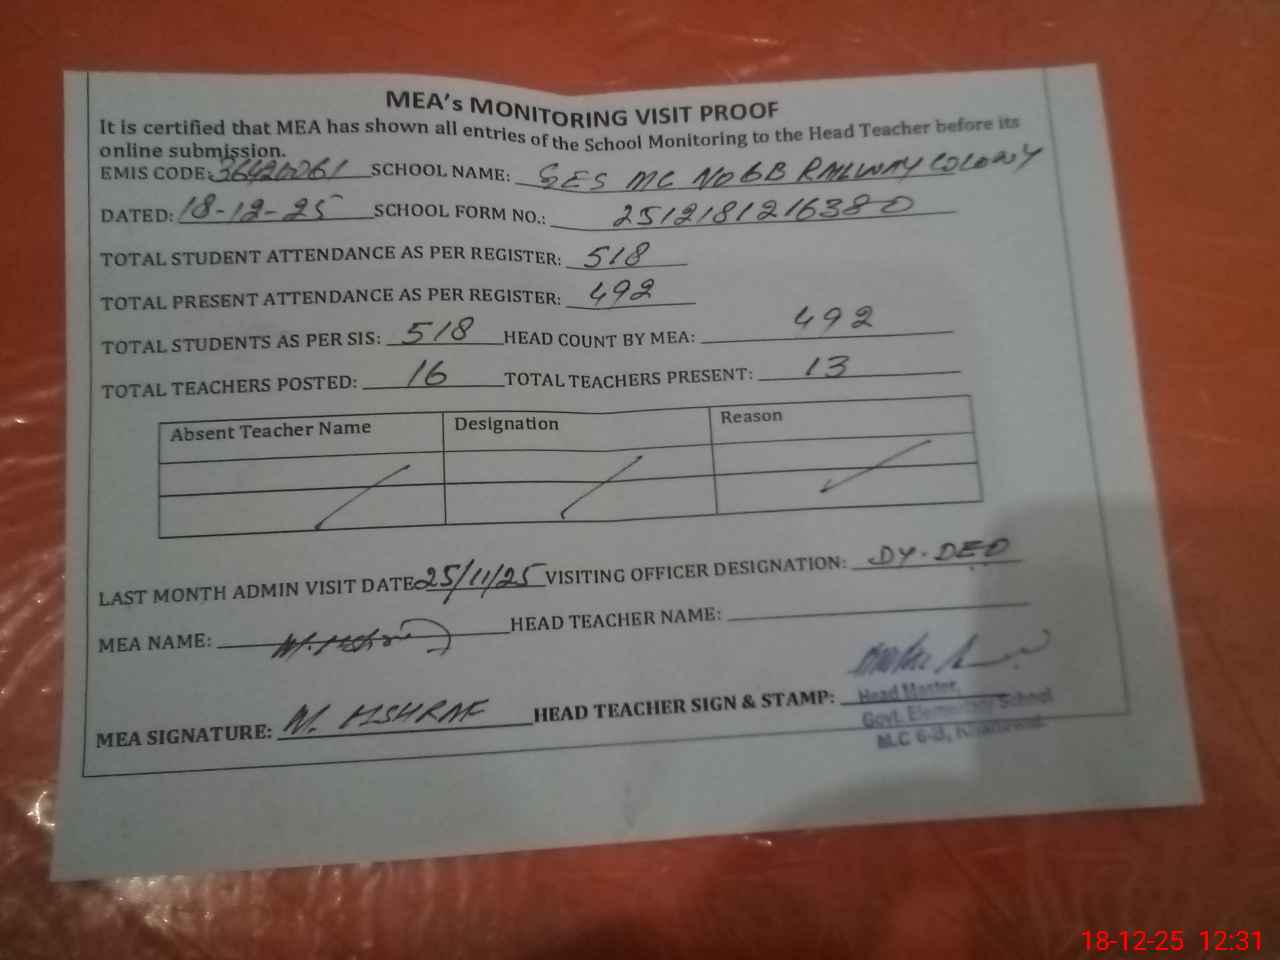 MEA's MONITORING VISIT PROOF
It is certified that MEA has shown all entries of the School Monitoring to the Head Teacher before its
online submission.
EMIS CODE: 36420061 SCHOOL NAME: GES MC NO 6B RAILWAY COLONY
DATED: 18-12-25 SCHOOL FORM NO.: 2512181216380
TOTAL STUDENT ATTENDANCE AS PER REGISTER: 518
TOTAL PRESENT ATTENDANCE AS PER REGISTER: 492
TOTAL STUDENTS AS PER SIS: 518 HEAD COUNT BY MEA: 492
TOTAL TEACHERS POSTED: 16 TOTAL TEACHERS PRESENT: 13
Absent Teacher Name Designation Reason
LAST MONTH ADMIN VISIT DATE 25/11/25 VISITING OFFICER DESIGNATION: DY. DEO
MEA NAME: HEAD TEACHER NAME:
MEA SIGNATURE: M. ASHRAF HEAD TEACHER SIGN & STAMP:
Head Master,
Govt. Elementary School
M.C 6-B,
18-12-25 12:31